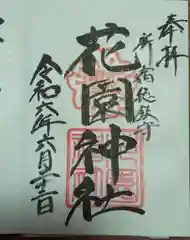 奉拝
所宿総鎮守
花園神社
令和六年六月二十二日